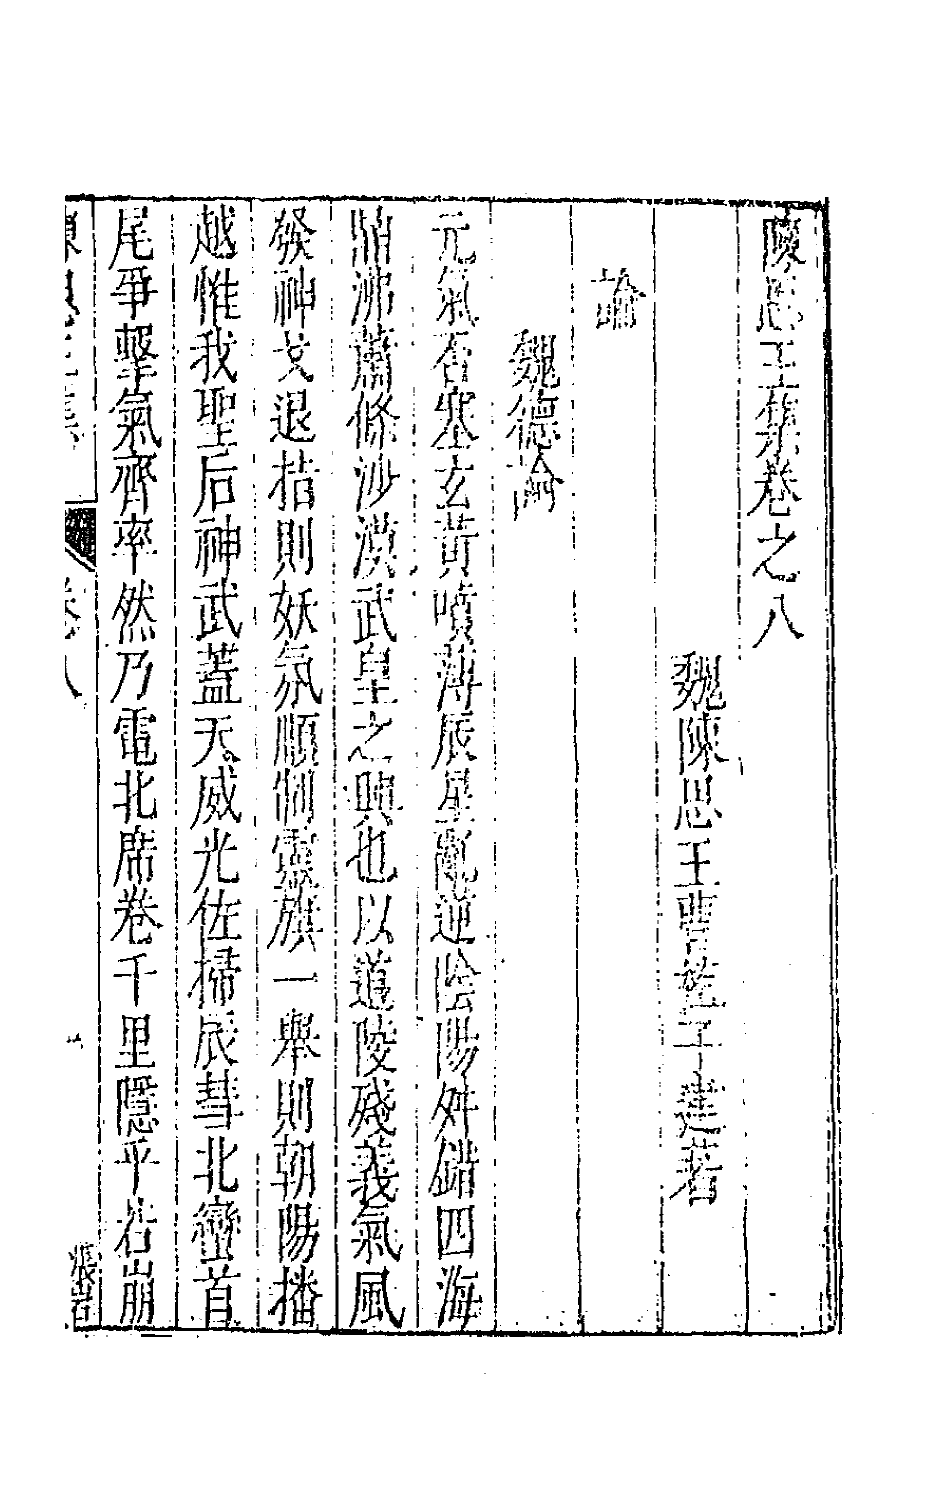 陳思王集卷之八
魏陳思王曹植子建著
論
魏德論
元氣否塞玄黃噴薄辰星亂逆陰陽舛錯四海
鼎沸蕭條沙漠武皇之興也以道陵殘義氣風
發神戈退指則妖氛順制靈旗一舉則朝陽播
越惟我聖后神武蓋天威光佐掃辰彗北彎首
尾爭擊氣齊率然乃電北席卷千里隱乎若崩
陳思王集 卷八